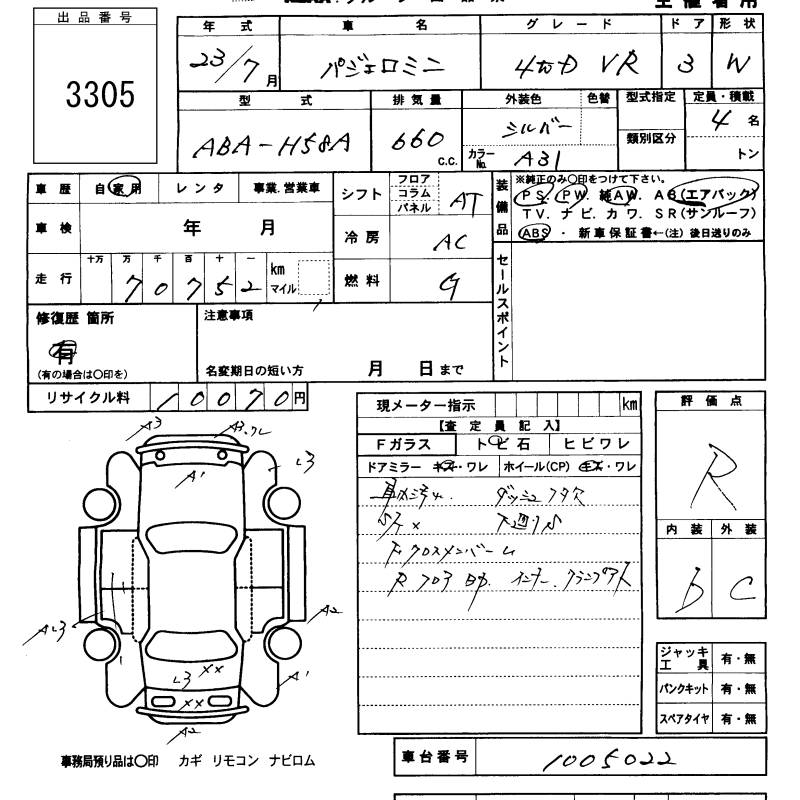 出品番号
3305
年式 車名 グレード ドア 形状
23/7月 パジェロミニ 4WD VR 3 W
型式 排気量 外装色 色替 型式指定 定員・積載
ABA-H58A 660 c.c. シルバー 類別区分 4名
カラーNo. A31 トン
車歴 自家用 レンタ 事業.営業車 シフト フロア コラム パネル AT
装備品 ※純正のみ○印をつけて下さい。
PS. PW. 純AW. AB(エアバック)
TV. ナビ. カワ. SR(サンルーフ)
ABS・新車保証書←(注)後日送りのみ
車検 年 月 冷房 AC
走行 十万 万 千 百 十 一 km マイル
70752 燃料 G
セールスポイント
修復歴 箇所 注意事項
有
(有の場合は○印を) 名変期日の短い方 月 日まで
リサイクル料 10070円
現メーター指示 km
【査定員記入】
Fガラス トビ石 ヒビワレ
ドアミラー キズ・ワレ ホイール(CP) キズ・ワレ
ダッシュ
下廻りS
Fクロスメンバー
Rフロア
評価点
R
内装 外装
b C
A3 A3.ワレ
A1 L3
AL3 A2
L3 XX A1
XX
A2
ジャッキ工具 有・無
パンクキット 有・無
スペアタイヤ 有・無
車台番号 1005022
事務局預り品は○印 カギ リモコン ナビロム